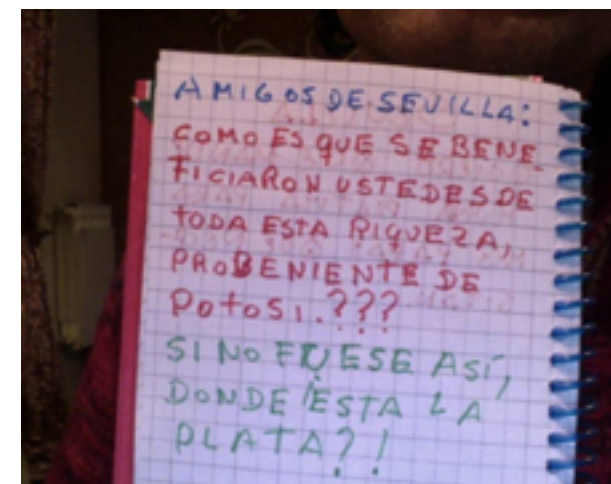 AMIGOS DE SEVILLA:
COMO ES QUE SE BENE
FICIARON USTEDES DE
TODA ESTA RIQUEZA,
PROBENIENTE DE
POTOSI.???
SI NO FUESE ASÍ,
DONDE ESTA LA
PLATA?!